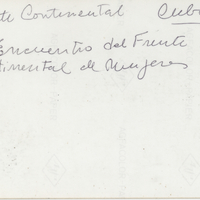 te Continental Cub
Encuentro del Frente
tinental de Mujeres